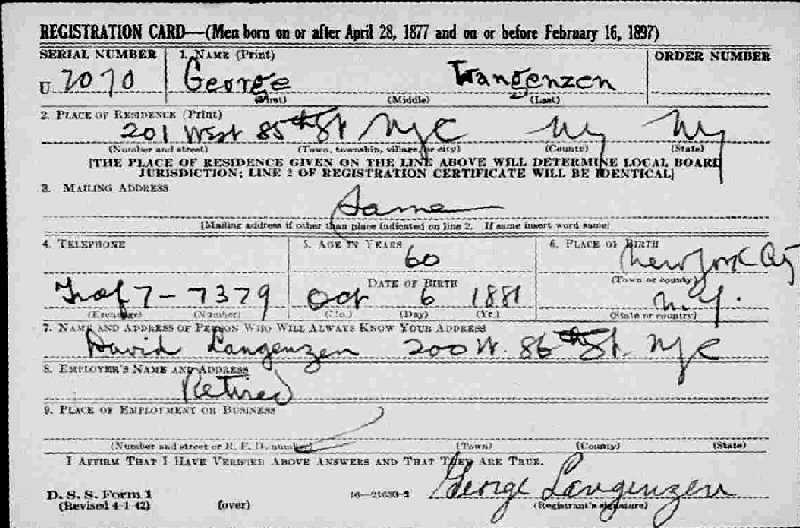 REGISTRATION CARD—(Men born on or after April 28, 1877 and on or before February 16, 1897)
SERIAL NUMBER 1. NAME (Print) ORDER NUMBER
U 2070 George Langenzen
(First) (Middle) (Last)
2. PLACE OF RESIDENCE (Print)
201 West 85th St NYC NY NY
(Number and street) (Town, township, village, or city) (County) (State)
[THE PLACE OF RESIDENCE GIVEN ON THE LINE ABOVE WILL DETERMINE LOCAL BOARD
JURISDICTION; LINE 2 OF REGISTRATION CERTIFICATE WILL BE IDENTICAL]
3. MAILING ADDRESS
Same
[Mailing address if other than place indicated on line 2. If same insert word same]
4. TELEPHONE 5. AGE IN YEARS 6. PLACE OF BIRTH
60 New York City
DATE OF BIRTH (Town or county)
Traf 7-7379 Oct 6 1881 N.Y.
(Exchange) (Number) (Mo.) (Day) (Yr.) (State or country)
7. NAME AND ADDRESS OF PERSON WHO WILL ALWAYS KNOW YOUR ADDRESS
David Langenzen 200 W. 86th St. NYC
8. EMPLOYER'S NAME AND ADDRESS
Retired
9. PLACE OF EMPLOYMENT OR BUSINESS
(Number and street or R. F. D. number) (Town) (County) (State)
I AFFIRM THAT I HAVE VERIFIED ABOVE ANSWERS AND THAT THEY ARE TRUE.
D. S. S. Form 1
(Revised 4-1-42) (over) 16—21630-2 George Langenzen
(Registrant's signature)